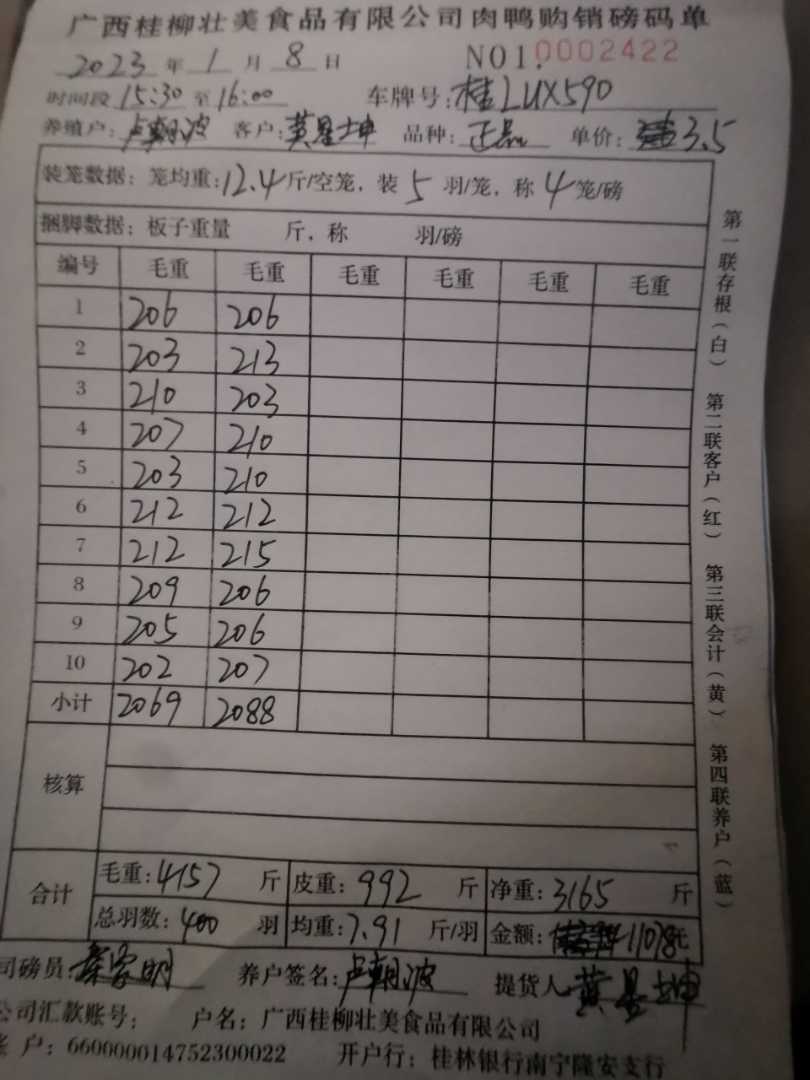 广西桂柳壮美食品有限公司肉鸭购销磅码单
2023年1月8日 NO1.0002422
时间段15:30至16:00 车牌号:桂LUX590
养殖户:卢朝波 客户:黄显坤 品种:正品 单价:3.5
装笼数据:笼均重:12.4斤/空笼,装5羽/笼,称4笼/磅
捆脚数据:板子重量 斤,称 羽/磅
编号 毛重 毛重 毛重 毛重 毛重 毛重
1 206 206
2 203 213
3 210 203
4 207 210
5 203 210
6 212 212
7 212 215
8 209 206
9 205 206
10 202 207
小计 2069 2088
核算
合计 毛重:4157斤 皮重:992斤 净重:3165斤
总羽数:400羽 均重:7.91斤/羽 金额:11078元
司磅员:秦家明 养户签名:卢朝波 提货人 黄显坤
公司汇款账号: 户名:广西桂柳壮美食品有限公司
账 户:660000014752300022 开户行:桂林银行南宁隆安支行
第一联存根(白) 第二联客户(红) 第三联会计(黄) 第四联养户(蓝)